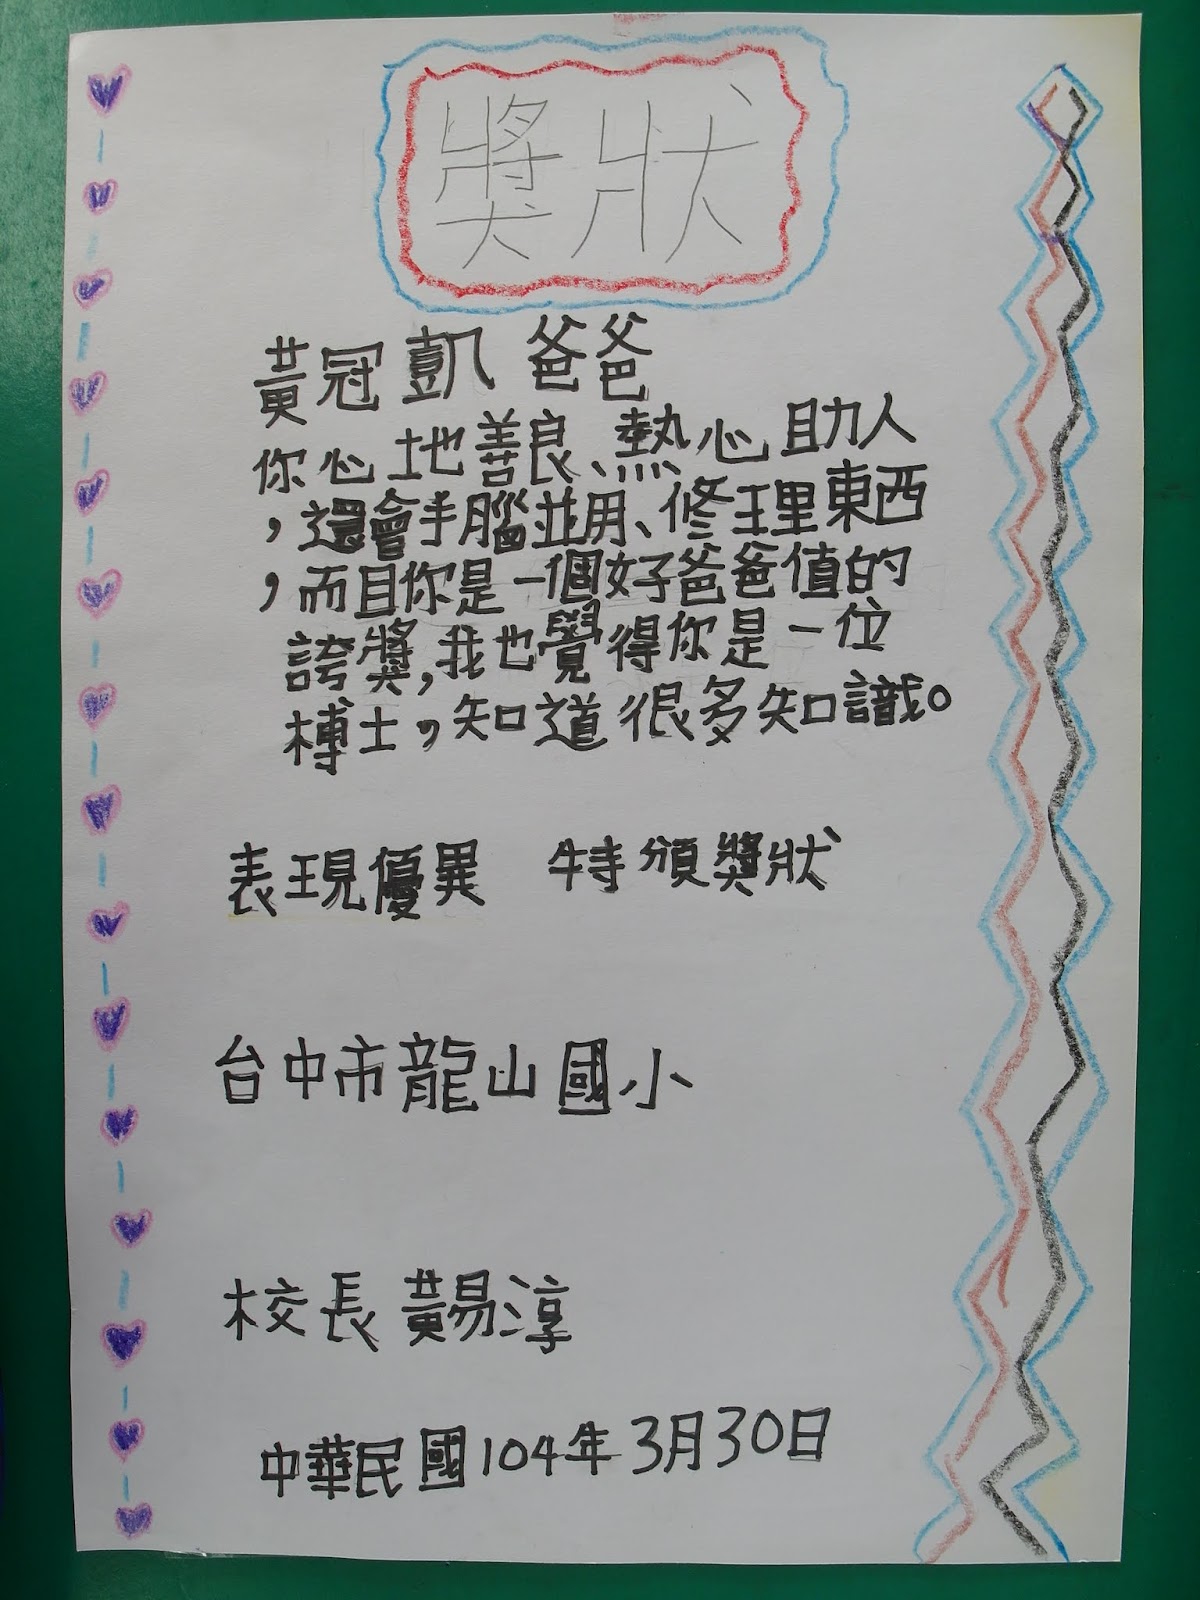 獎狀
黃冠凱爸爸
你心地善良、熱心助人
，還會手腦並用、修理東西
，而且你是一個好爸爸值的
誇獎，我也覺得你是一位
博士，知道很多知識。
表現優異 特頒獎狀
台中市龍山國小
校長黃易淳
中華民國104年3月30日